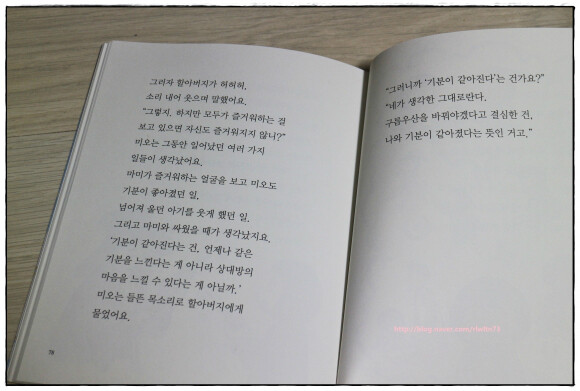 그러자 할아버지가 허허허,
소리 내어 웃으며 말했어요.
"그렇지, 하지만 모두가 즐거워하는 걸
보고 있으면 자신도 즐거워지지 않니?"
미오는 그동안 일어났던 여러 가지
일들이 생각났어요.
마미가 즐거워하는 얼굴을 보고 미오도
기분이 좋아졌던 일,
넘어져 울던 아기를 웃게 했던 일,
그리고 마미와 싸웠을 때가 생각났지요.
'기분이 같아진다는 건, 언제나 같은
기분을 느낀다는 게 아니라 상대방의
마음을 느낄 수 있다는 게 아닐까.'
미오는 들뜬 목소리로 할아버지에게
물었어요.
78
"그러니까 '기분이 같아진다'는 건가요?"
"네가 생각한 그대로란다.
구름우산을 바꿔야겠다고 결심한 건,
나와 기분이 같아졌다는 뜻인 거고."